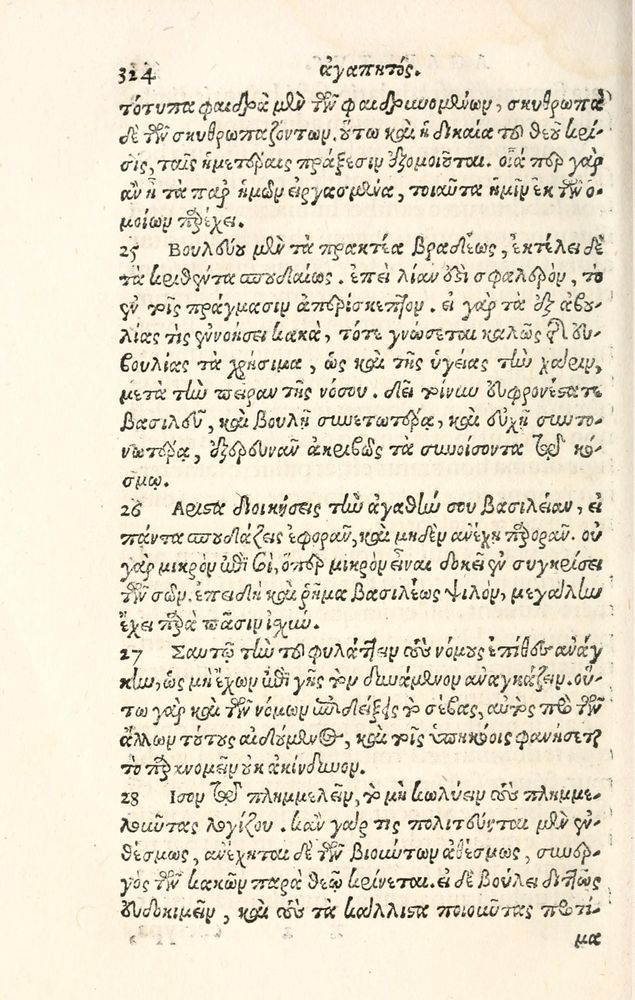 324 ἀγαπητός.
τότυπα φαιδρὰ μὲν τῶν φαιδρυνομένων, σκυθρωπὰ
δὲ τῶν σκυθρωπαζόντων. οὕτω καὶ ἡ δικαία τοῦ θεοῦ κρί-
σις, ταῖς ἡμετέραις πράξεσιν ἐξομοιοῦται. οἷά περ γὰρ
ἂν ᾖ τὰ παρ ἡμῶν εἰργασμένα, τοιαῦτα ἡμῖν ἐκ τῶν ὁ-
μοίων παρέχει.
25 Βουλεύου μὲν τὰ πρακτέα βραδέως, ἐκτέλει δὲ
τὰ κριθέντα σπουδαίως. ἐπεὶ λίαν ἐστὶ σφαλερὸν, τὸ
ἐν τοῖς πράγμασιν ἀπερίσκεπτον. εἰ γὰρ τὰ ἐξ ἀβου-
λίας τὶς ἐννοήσει κακὰ, τότε γνώσεται καλῶς τῆς εὐ-
βουλίας τὰ χρήσιμα, ὡς καὶ τῆς ὑγείας τὴν χάριν,
μετὰ τὴν πεῖραν τῆς νόσου. δεῖ τοίνυν εὐφρονέστατε
βασιλεῦ, καὶ βουλῇ συνετωτέρᾳ, καὶ εὐχῇ συντο-
νωτέρᾳ, ἐξερευνᾶν ἀκριβῶς τὰ συνοίσοντα τῷ κό-
σμῳ.
26 Αριστα διοικήσεις τὴν ἀγαθήν σου βασιλείαν, εἰ
πάντα σπουδάζεις ἐφορᾶν, καὶ μηδὲν ἀνέχῃ παρορᾶν. οὐ
γὰρ μικρὸν ἐπὶ σοὶ, ὅπερ μικρὸν εἶναι δοκεῖ ἐν συγκρίσει
τῶν σῶν. ἐπειδὴ καὶ ῥῆμα βασιλέως ψιλὸν, μεγάλην
ἔχει παρὰ πᾶσιν ἰχύν.
27 Σαυτῷ τὴν τοῦ φυλάττειν τοὺς νόμους ἐπίθες ἀνάγ
κην, ὡς μὴ ἔχων ἐπὶ γῆς τὸν δυνάμενον ἀναγκάζειν. οὕ-
τω γὰρ καὶ τῶν νόμων ἐπιδείξῃ τὸ σέβας, αὐτὸς πρὸ τῶν
ἄλλων τούτους αἰδούμενος, καὶ τοῖς ὑπηκόοις φανήσεται
τὸ παρανομεῖν οὐκ ἀκίνδυνον.
28 Ισον τῷ πλημμελεῖν, τὸ μὴ κωλύειν τοὺς πλημμε-
λοῦντας λογίζου. κἂν γάρ τις πολιτεύηται μὲν ἐν-
θέσμως, ἀνέχηται δὲ τῶν βιούντων ἀθέσμως, συνερ-
γὸς τῶν κακῶν παρὰ θεῷ κρίνεται. εἰ δὲ βούλει διττῶς
εὐδοκιμεῖν, καὶ τοὺς τὰ κάλλιστα ποιοῦντας προτί-
μα